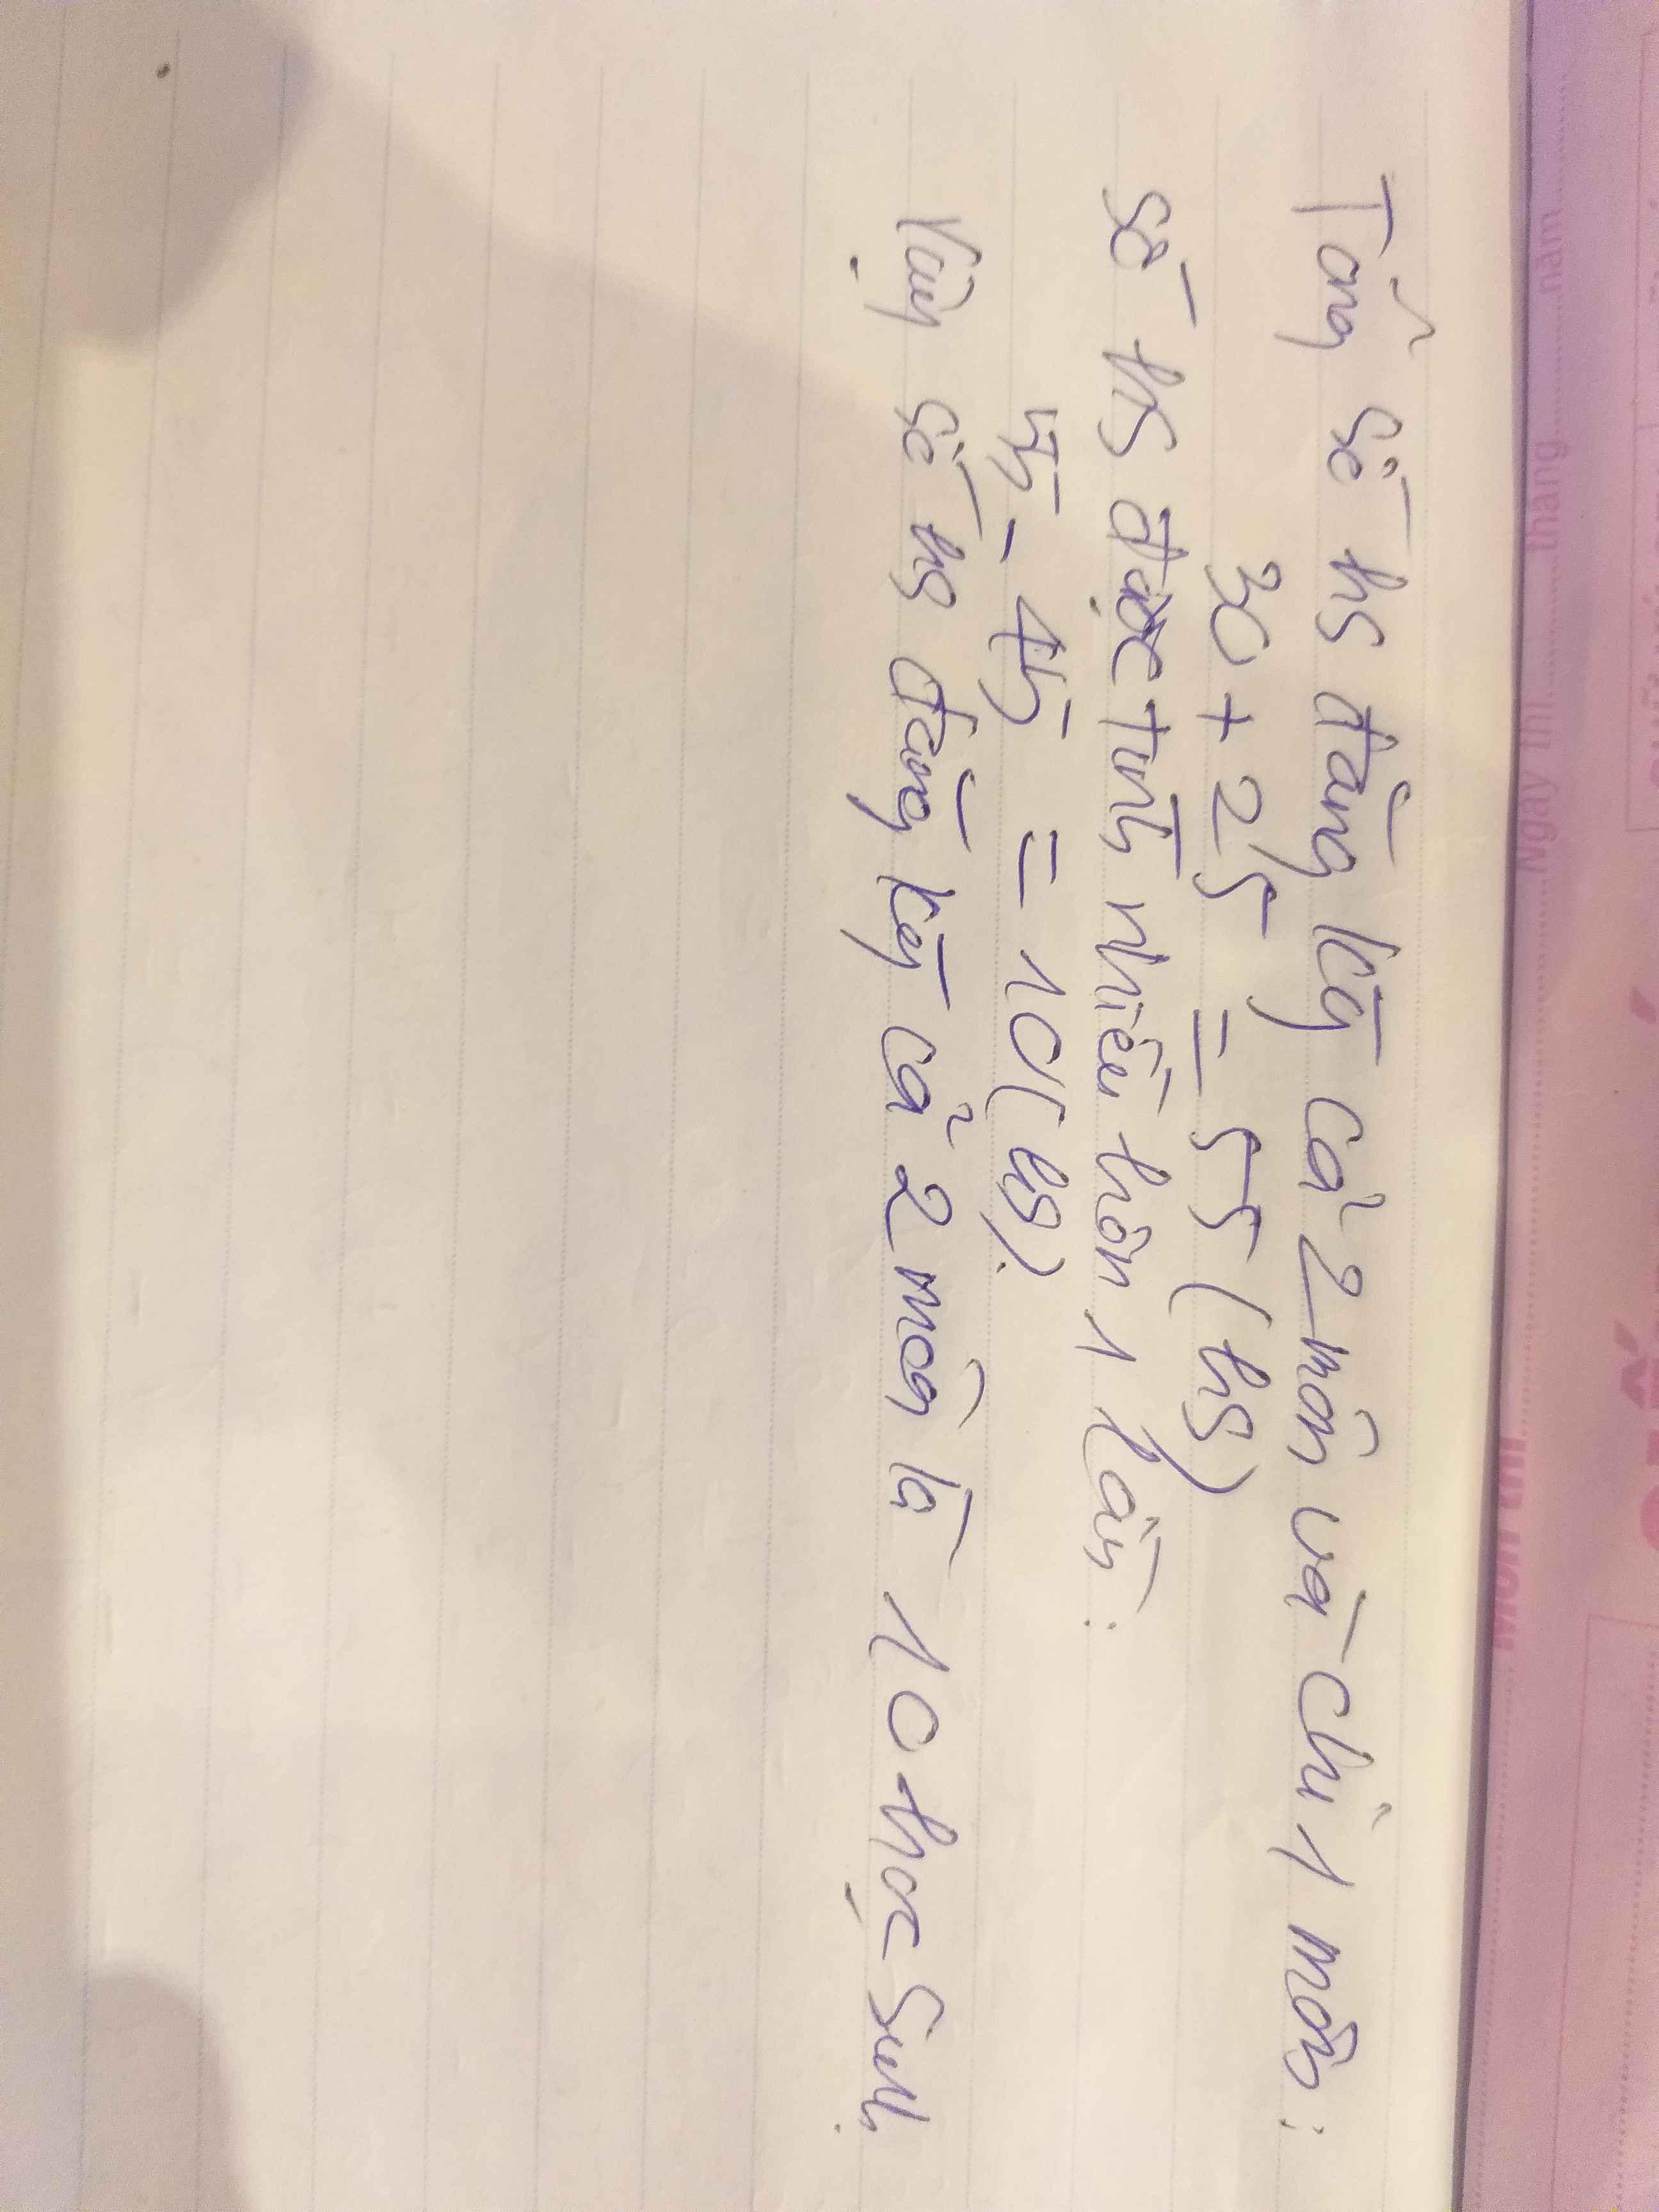 Tổng số hs đăng ký cả 2 môn và chỉ 1 môn:
30 + 25 = 55 (hs)
Số hs được tính nhiều hơn 1 lần:
55 - 45 = 10 (hs).
Vậy số hs đăng ký cả 2 môn là 10 học sinh
Ngày thi......tháng......năm
MÔN THI